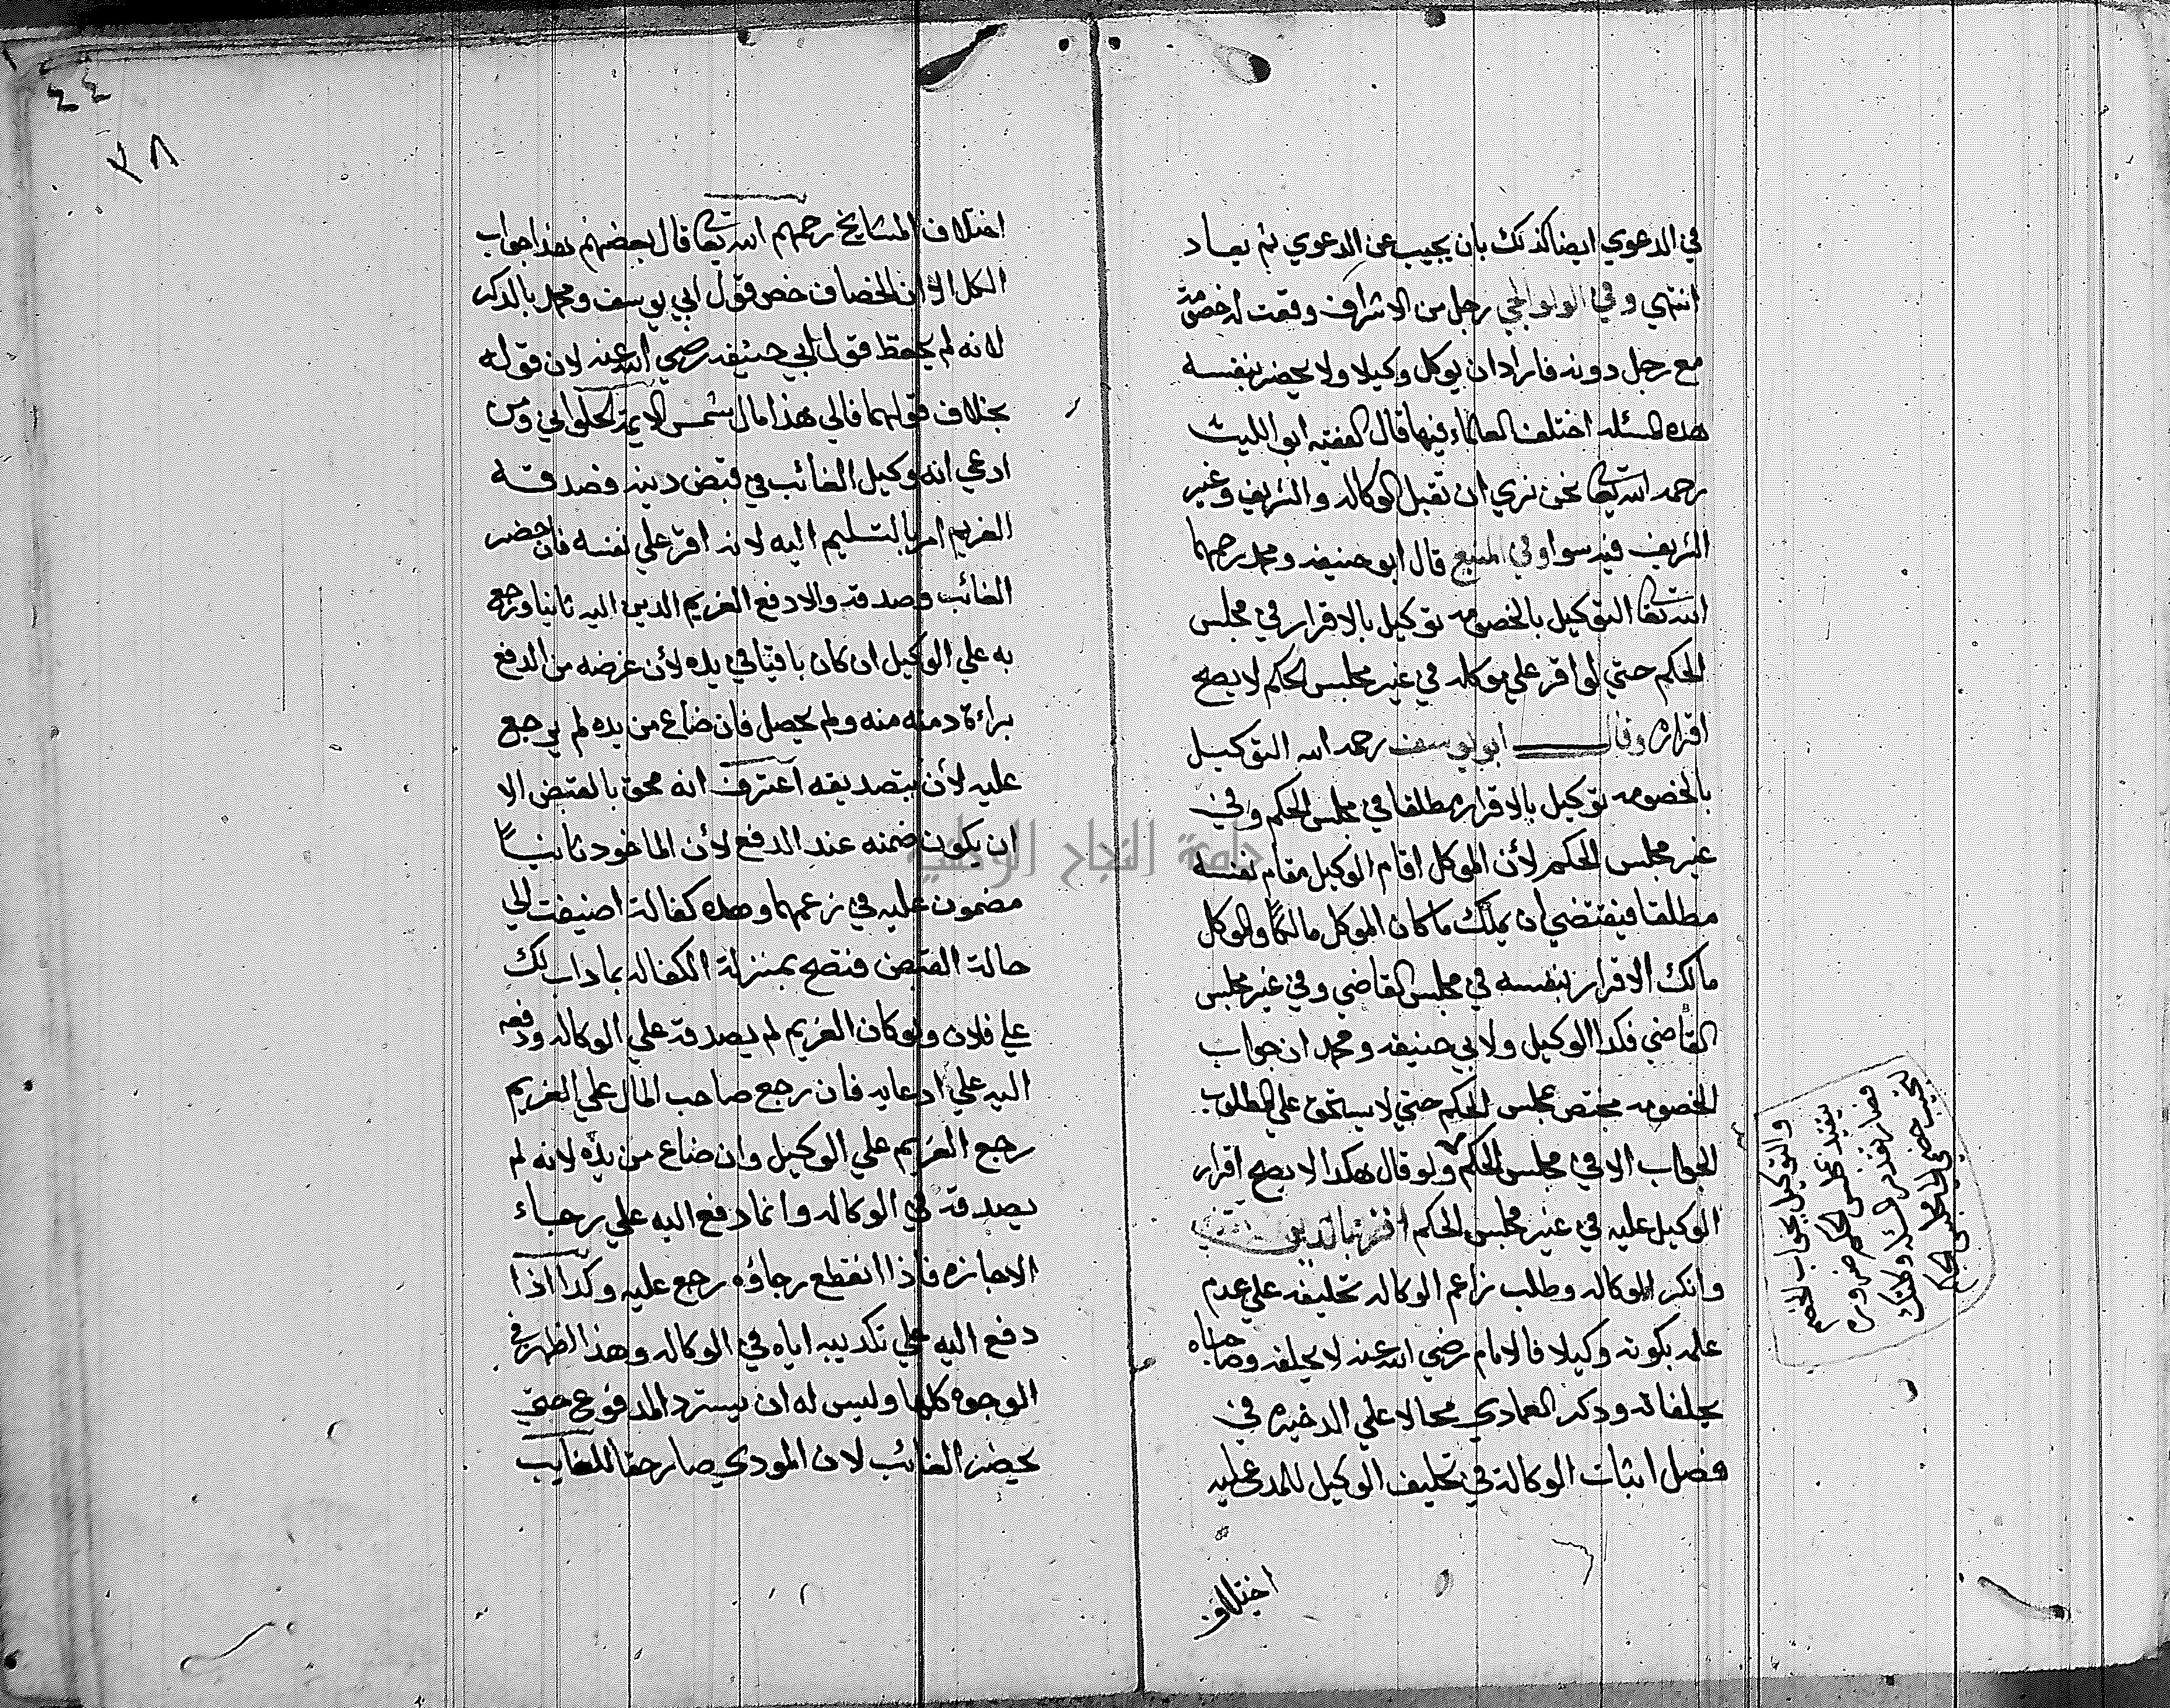 في الدعوي ايضا كذلك بان يجيب عن الدعوي ثم يصاد
انتهي وفي الولوالجي رجل من الاشراف وقعت له خصومة
مع رجل دونه فاراد ان يوكل وكيلا ولا يحضر بنفسه
هذه المسئله اختلف العلماء فيها قال الفقيه ابو الليث
رحمه الله تعا نحن نري ان تقبل الوكاله والشريف وغير
الشريف فيه سوا وفي المنبع قال ابو حنيفه ومحمد رحمهما
الله تعا التوكيل بالخصومه توكيل بالاقرار في مجلس
الحكم حتي لو اقر علي موكله في غير مجلس الحكم لا يصح
اقراره وقال ابو يوسف رحمه الله التوكيل
بالخصومه توكيل بالاقرار مطلقا في مجلس الحكم وفي
غير مجلس الحكم لأن الموكل اقام الوكيل مقام نفسه
مطلقا فيقتضي ان يملك ما كان الموكل مالكًا والموكل
مالك الاقرار بنفسه في مجلس القاضي وفي غير مجلس
القاضي فكدا الوكيل ولابي حنيفه ومحمد ان جواب
الخصومه مختص بمجلس الحكم حتي لا يستحق علي المطلوب
الجواب الا في مجلس الحكم ولو قال هكدا لا يصح اقرار
الوكيل عليه في غير مجلس الحكم اقر بالدين
وانكر الوكاله وطلب زاعم الوكاله تحليفه علي عدم
علمه بكونه وكيلا فالامام رضي الله عنه لا يحلفه وصاحباه
يحلفانه ودكر العمادي محالا علي الدخيره في
فصل اثبات الوكالة في تحليف الوكيل للمدعي عليه
اختلاف
والتوكيل بجواب الخصم
يتقيد بمجلس الحكم ضرورة
يجيب خصمي في مجلس الحكم
٤٤
٣٨
اختلاف المشايخ رحمهم الله تعا قال بعضهم هذا جواب
الكل الا ان الخصاف خص قول ابي يوسف ومحمد بالدكر
لانه لم يحفظ قول ابي حنيفه رضي الله عنه لان قوله
بخلاف قولهما فالي هذا مال شمس الايمة الحلواني ومن
ادعي انه وكيل الغائب في قبض دينه فصدقه
الغريم امر بالتسليم اليه لانه اقر علي نفسه فان حضر
الغائب وصدقه والا دفع الغريم الدين اليه ثانيا ورجع
به علي الوكيل ان كان باقيًا في يده لأن غرضه من الدفع
براءة دمته منه ولم يحصل فان ضاع من يده لم يرجع
عليه لأن بتصديقه اعترف انه محق بالقبض الا
ان يكون ضمنه عند الدفع لأن الماخود ثانيًا
مضمون عليه في زعمهما وهده كفالة اضيفت الي
حالة القبض فتصح بمنزلة الكفاله بما داب لك
علي فلان ولو كان الغريم لم يصدقه علي الوكاله ودفعه
اليه علي ادعايه فان رجع صاحب المال علي الغريم
رجع الغريم علي الوكيل وان ضاع من يده لانه لم
يصدقه في الوكاله وانما دفع اليه علي رجاء
الاجازه فاذا انقطع رجاؤه رجع عليه وكدا اذا
دفع اليه علي تكديبه اياه في الوكاله وهذا اظهر وفي
الوجوه كلها وليس له ان يسترد المدفوع حتي
يحضر الغائب لان المودي صار حقا للغايب
جامعة النجاح الوطنية